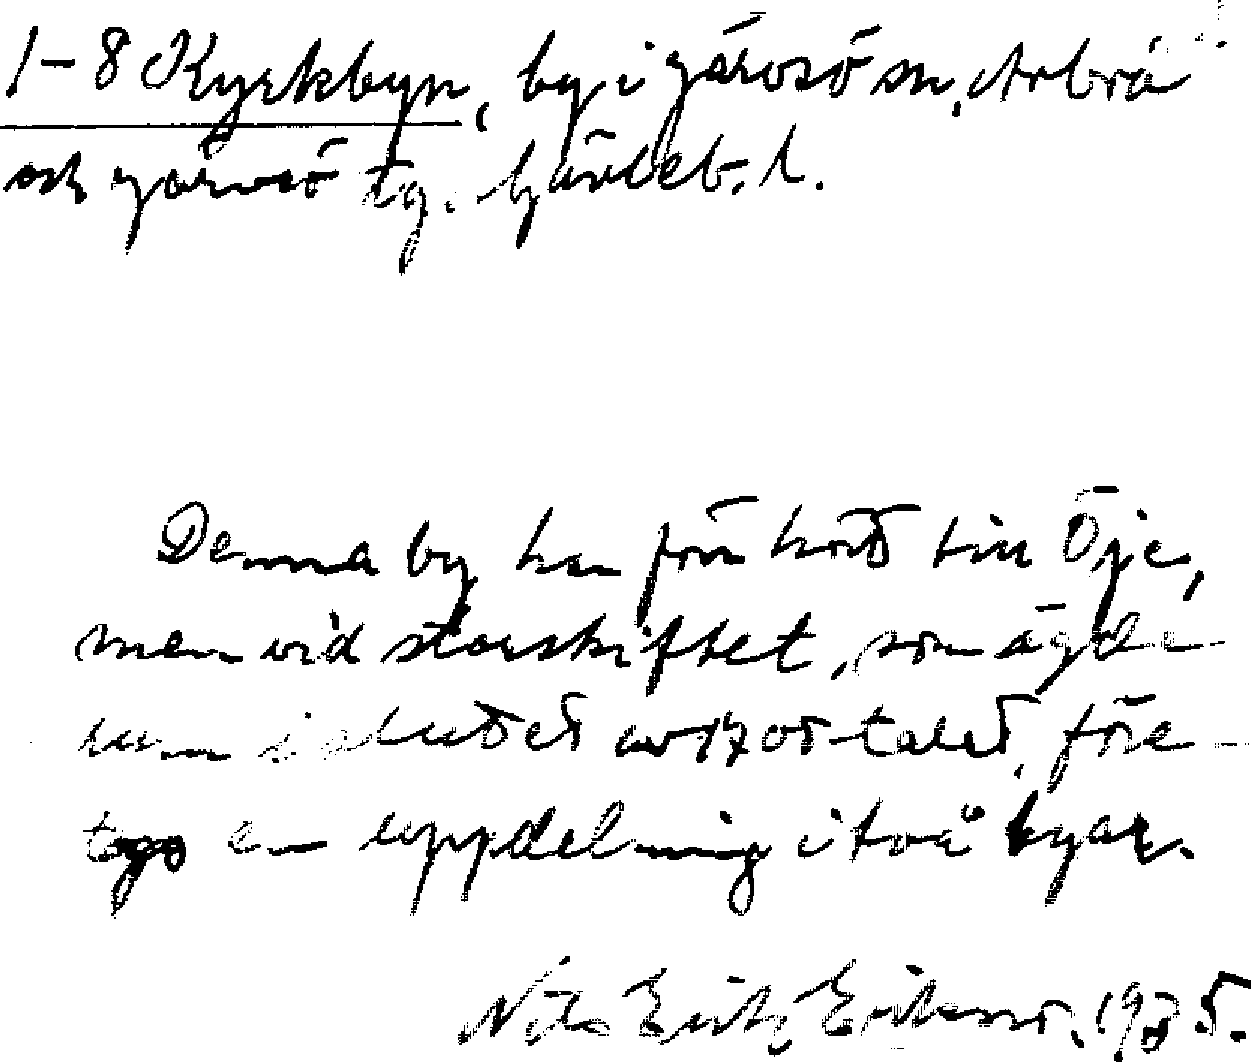 1-8 Kyrkbyn, by i Järvsö sn, Arbrå
och Järvsö tg. Gävleb. l.
Denna by har förr hört till Öje,
men vid storskiftet, som ägde
rum i slutet av 1700-talet, före-
togs en uppdelning i två byar.
Nils Erik Eriksson. 1935.